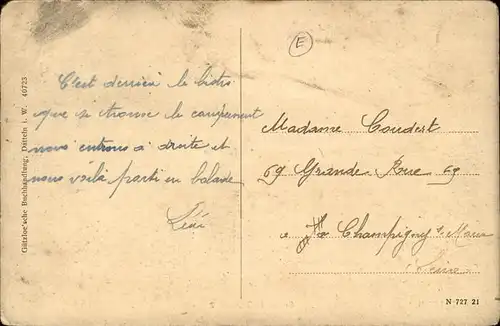 Gützloe'sche Buchhandlung, Datteln i. W. 40723
E
C'est derrière le bistro
que se trouve le campement
nous entrons à droite et
nous voilà parti en balade
Madame Coudert
69 Grande Rue 69
Champigny s. Marne
Seine
N 727 21